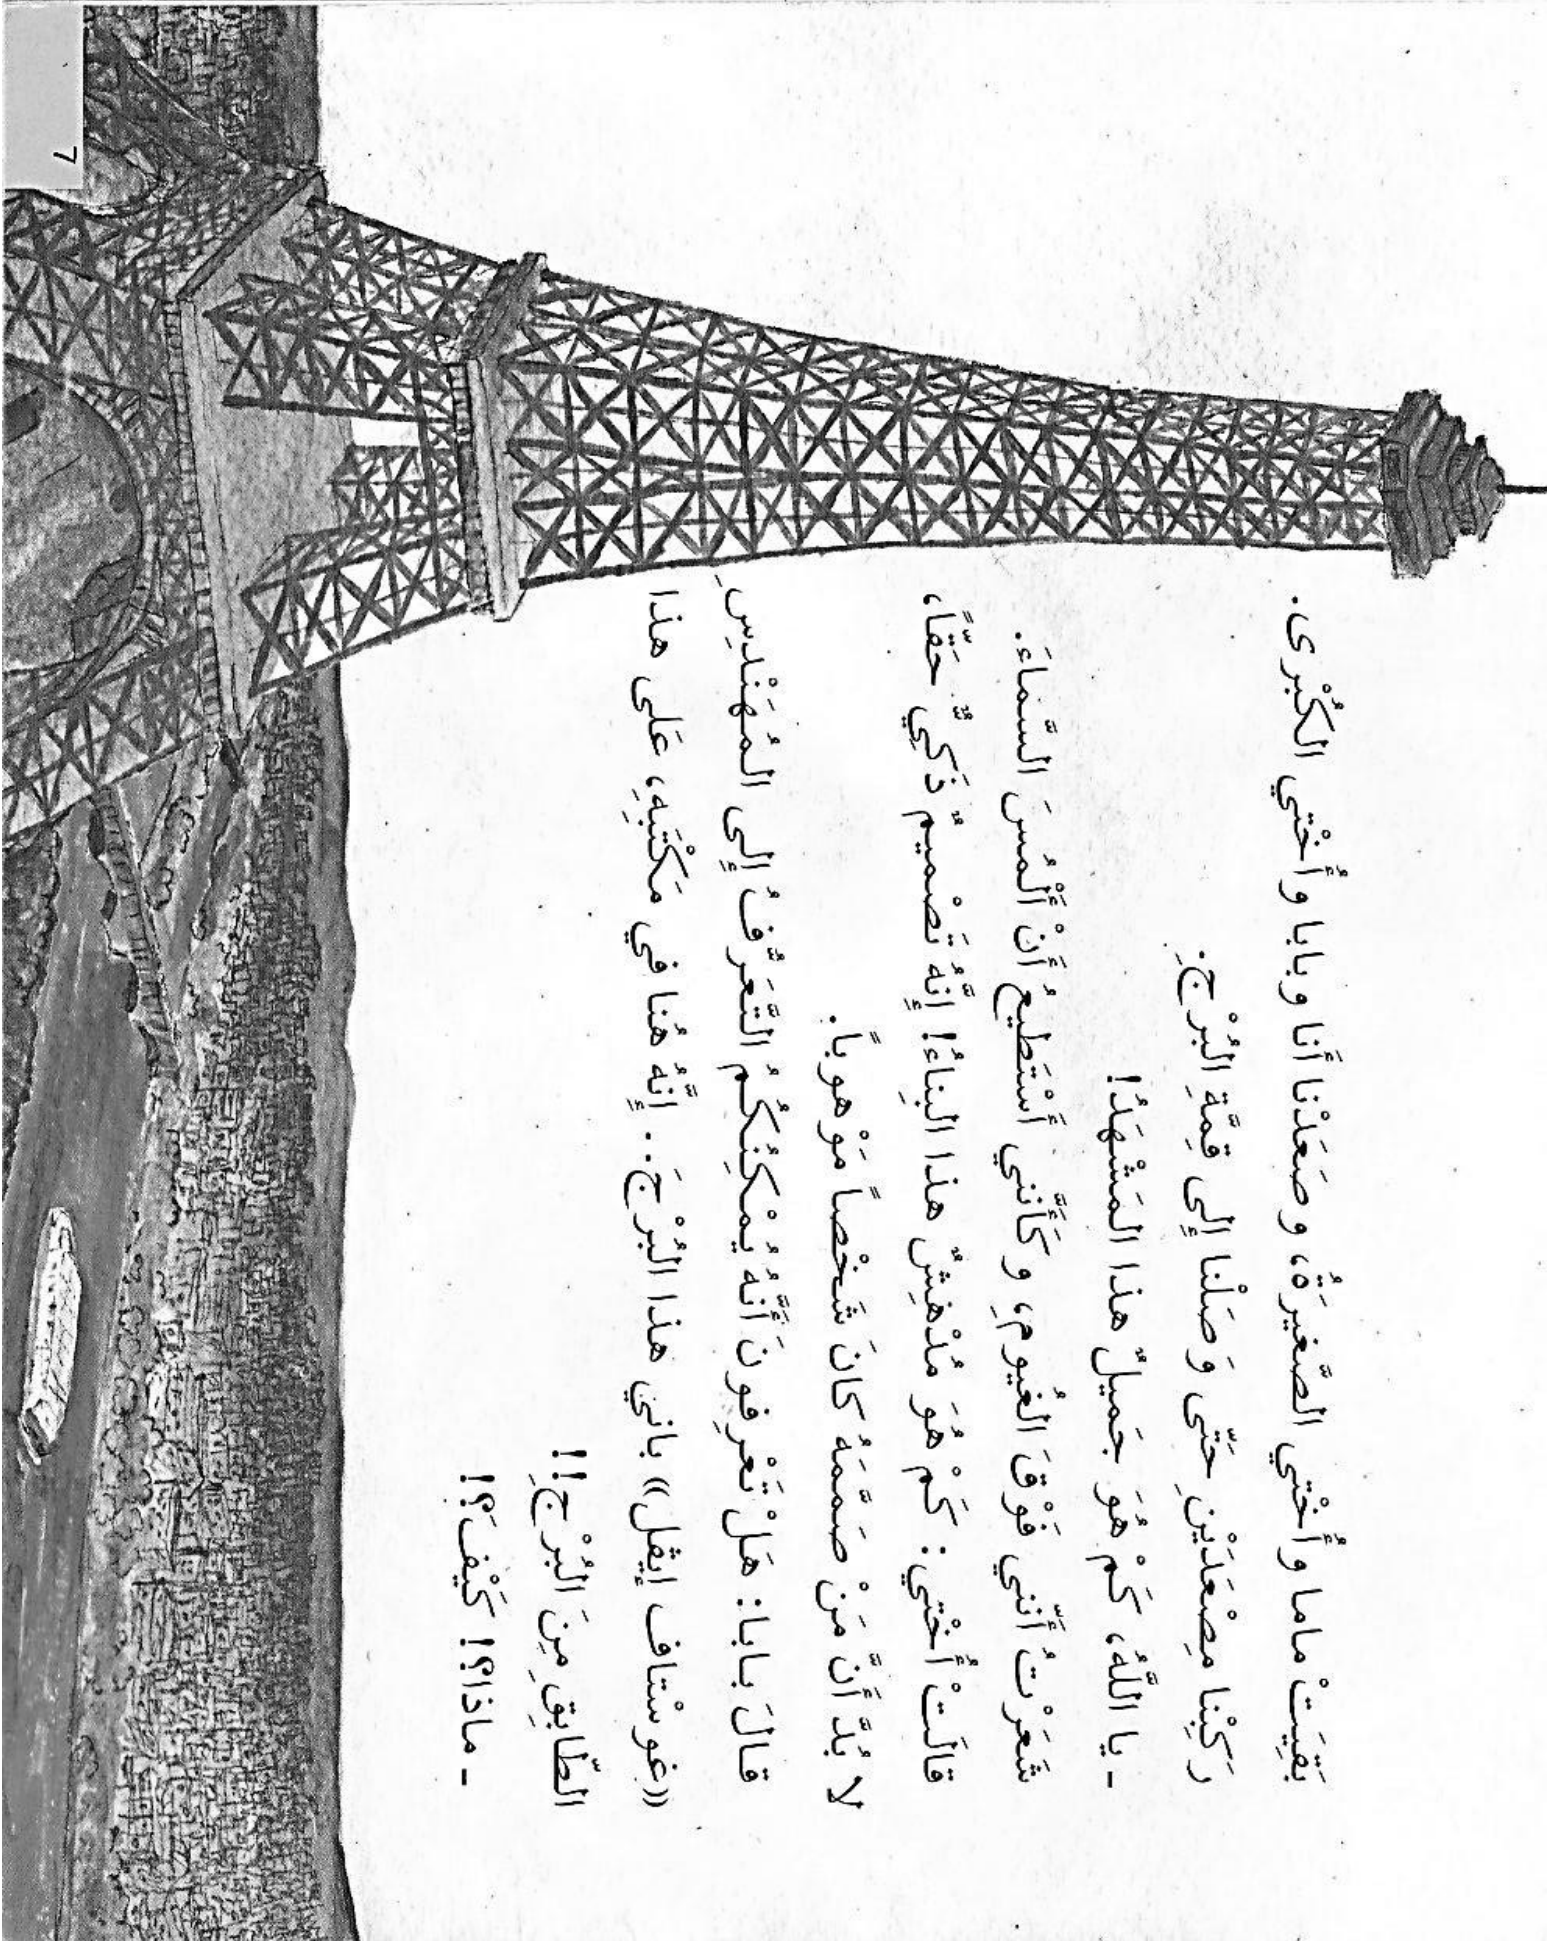 بَقِيَتْ ماما وأُخْتي الصَّغيرَةُ، وصَعَدْنا أَنا وبابا وأُخْتي الكُبْرى.
رَكِبْنا مِصْعَدَيْنِ حَتّى وَصَلْنا إِلى قِمَّةِ البُرْجِ.
- يا اللَّهُ، كَمْ هُوَ جَميلٌ هذا المَشْهَدُ!
شَعَرْتُ أَنَّني فَوْقَ الغُيومِ، وكَأَنَّني أَسْتَطيعُ أَنْ أَلْمُسَ السَّماءَ.
قالَتْ أُخْتي: كَمْ هُوَ مُدْهِشٌ هذا البِناءُ! إِنَّهُ تَصْميمٌ ذَكِيٌّ حَقّاً،
لا بُدَّ أَنَّ مَنْ صَمَّمَهُ كانَ شَخْصاً مَوْهوباً.
قالَ بابا: هَلْ تَعْرِفونَ أَنَّهُ يُمْكِنُكُمُ التَّعَرُّفُ إِلى المُهَنْدِسِ
«غوسْتاف إيفل» باني هذا البُرْجَ.. إِنَّهُ هُنا في مَكْتَبِهِ، عَلى هذا
الطّابِقِ مِنَ البُرْجِ!!
- ماذا؟! كَيْفَ؟!
٧